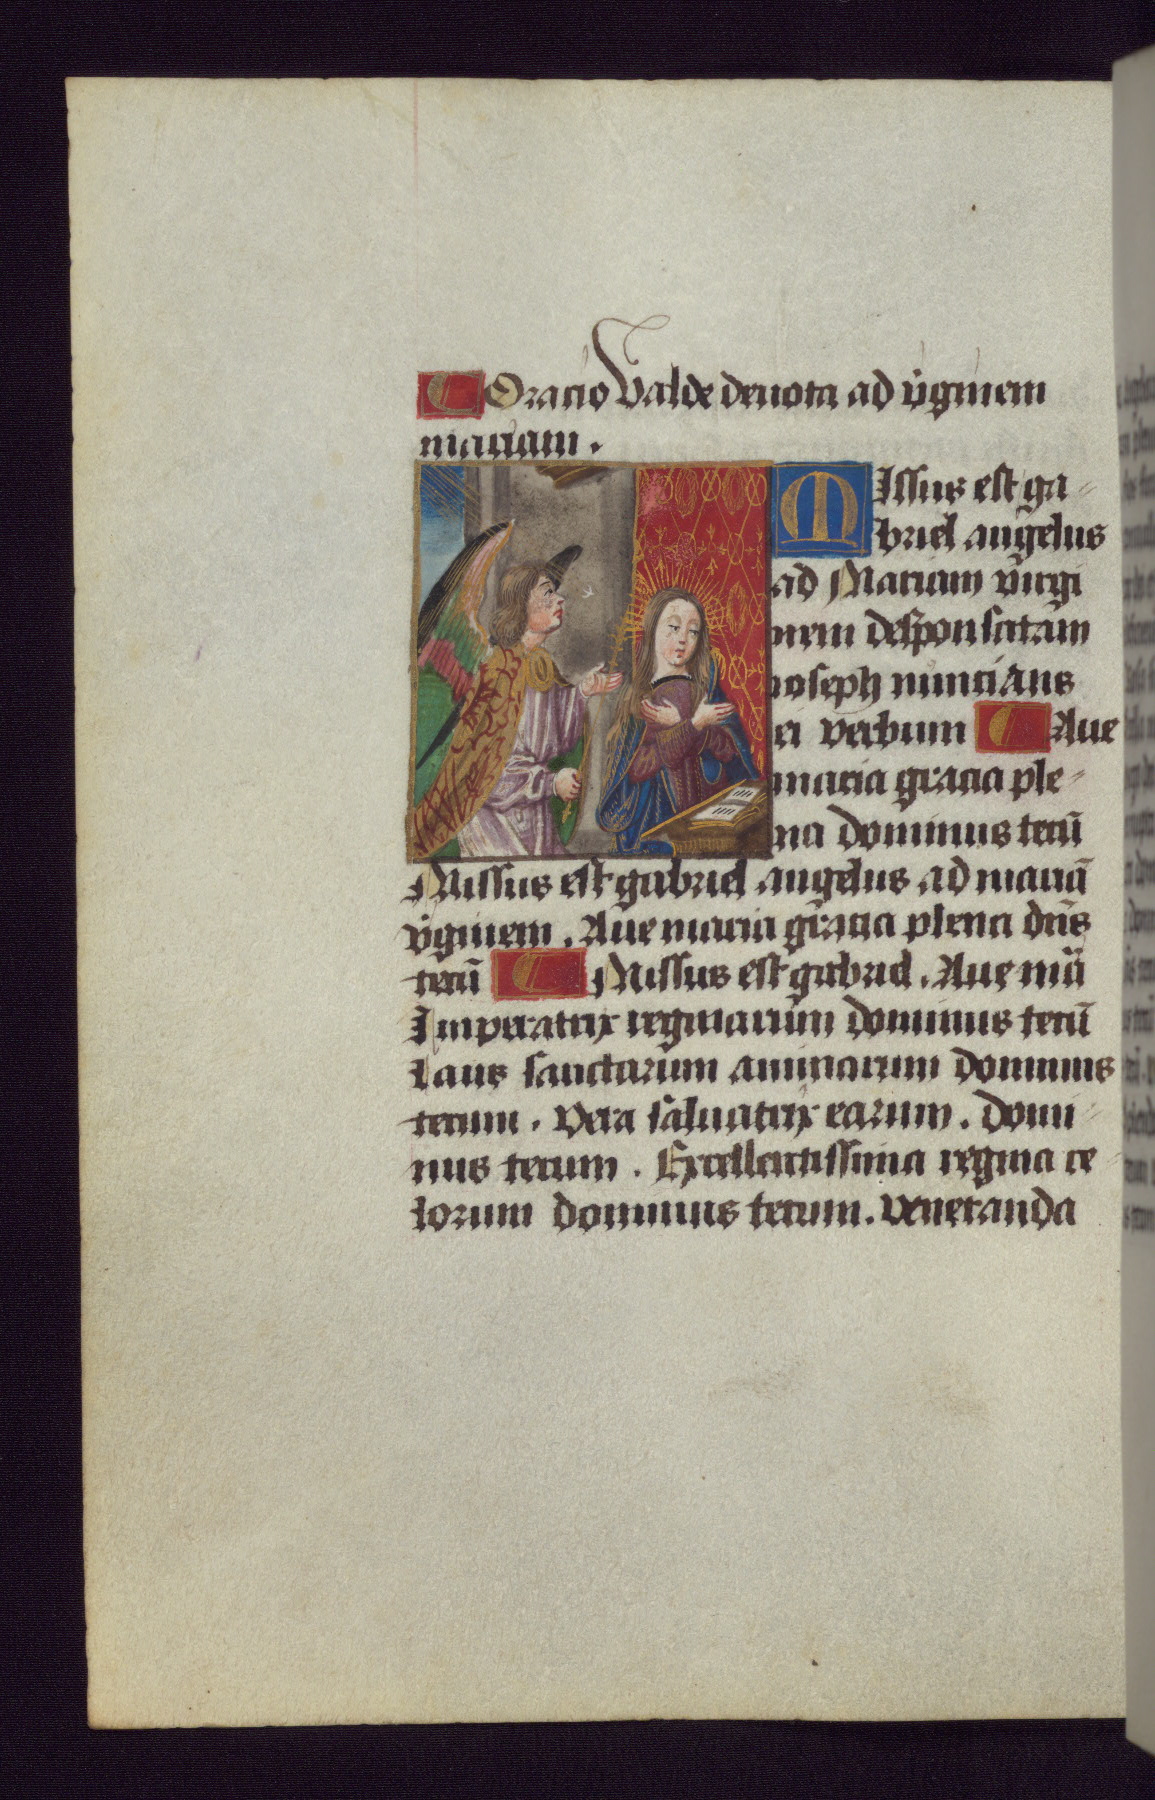 Oracio valde deuota ad v̄ginem
mariam.
Missus est ga-
briel angelus
ad Mariam virgi
nem desponsatam
ioseph nuncians
ei verbum Aue
maria gracia ple-
na dominus tecū
Missus est gabriel angelus ad mariā
v̄ginem. Aue maria gracia plena dn̄s
tecū Missus est gabriel. Aue mā
Imperatrix reginarum dominus tecū
Laus sanctarum animarum dominus
tecum. Vera saluatrix earum. domi-
nus tecum. Excellentissima regina ce
lorum dominus tecum. veneranda